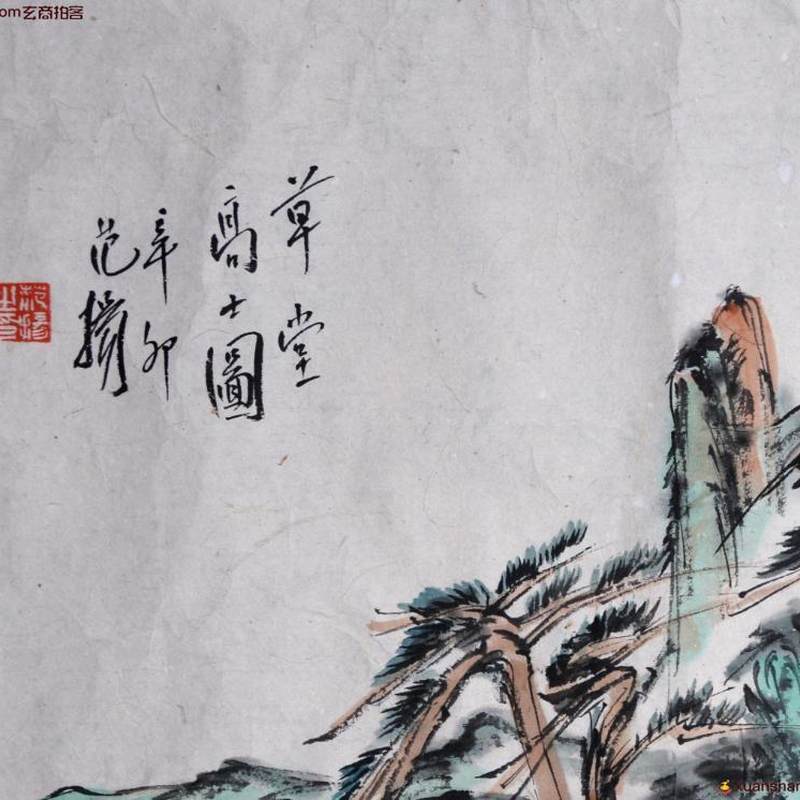 om玄商拍客
草堂
高士圖
辛卯
范
xuanshan